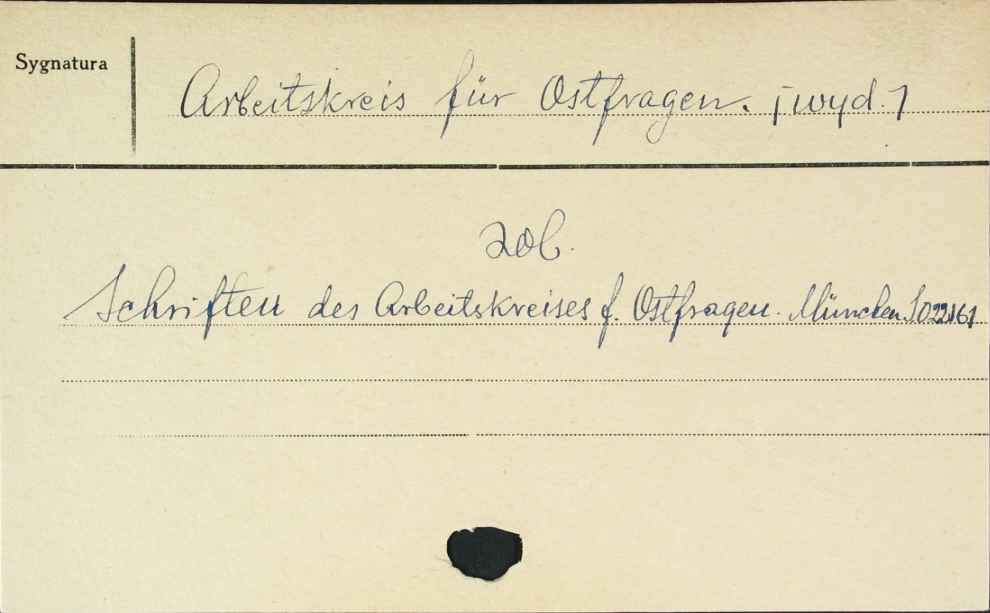 Sygnatura
Arbeitskreis für Ostfragen. [wyd.]
zob.
Schriften des Arbeitskreises f. Ostfragen. München